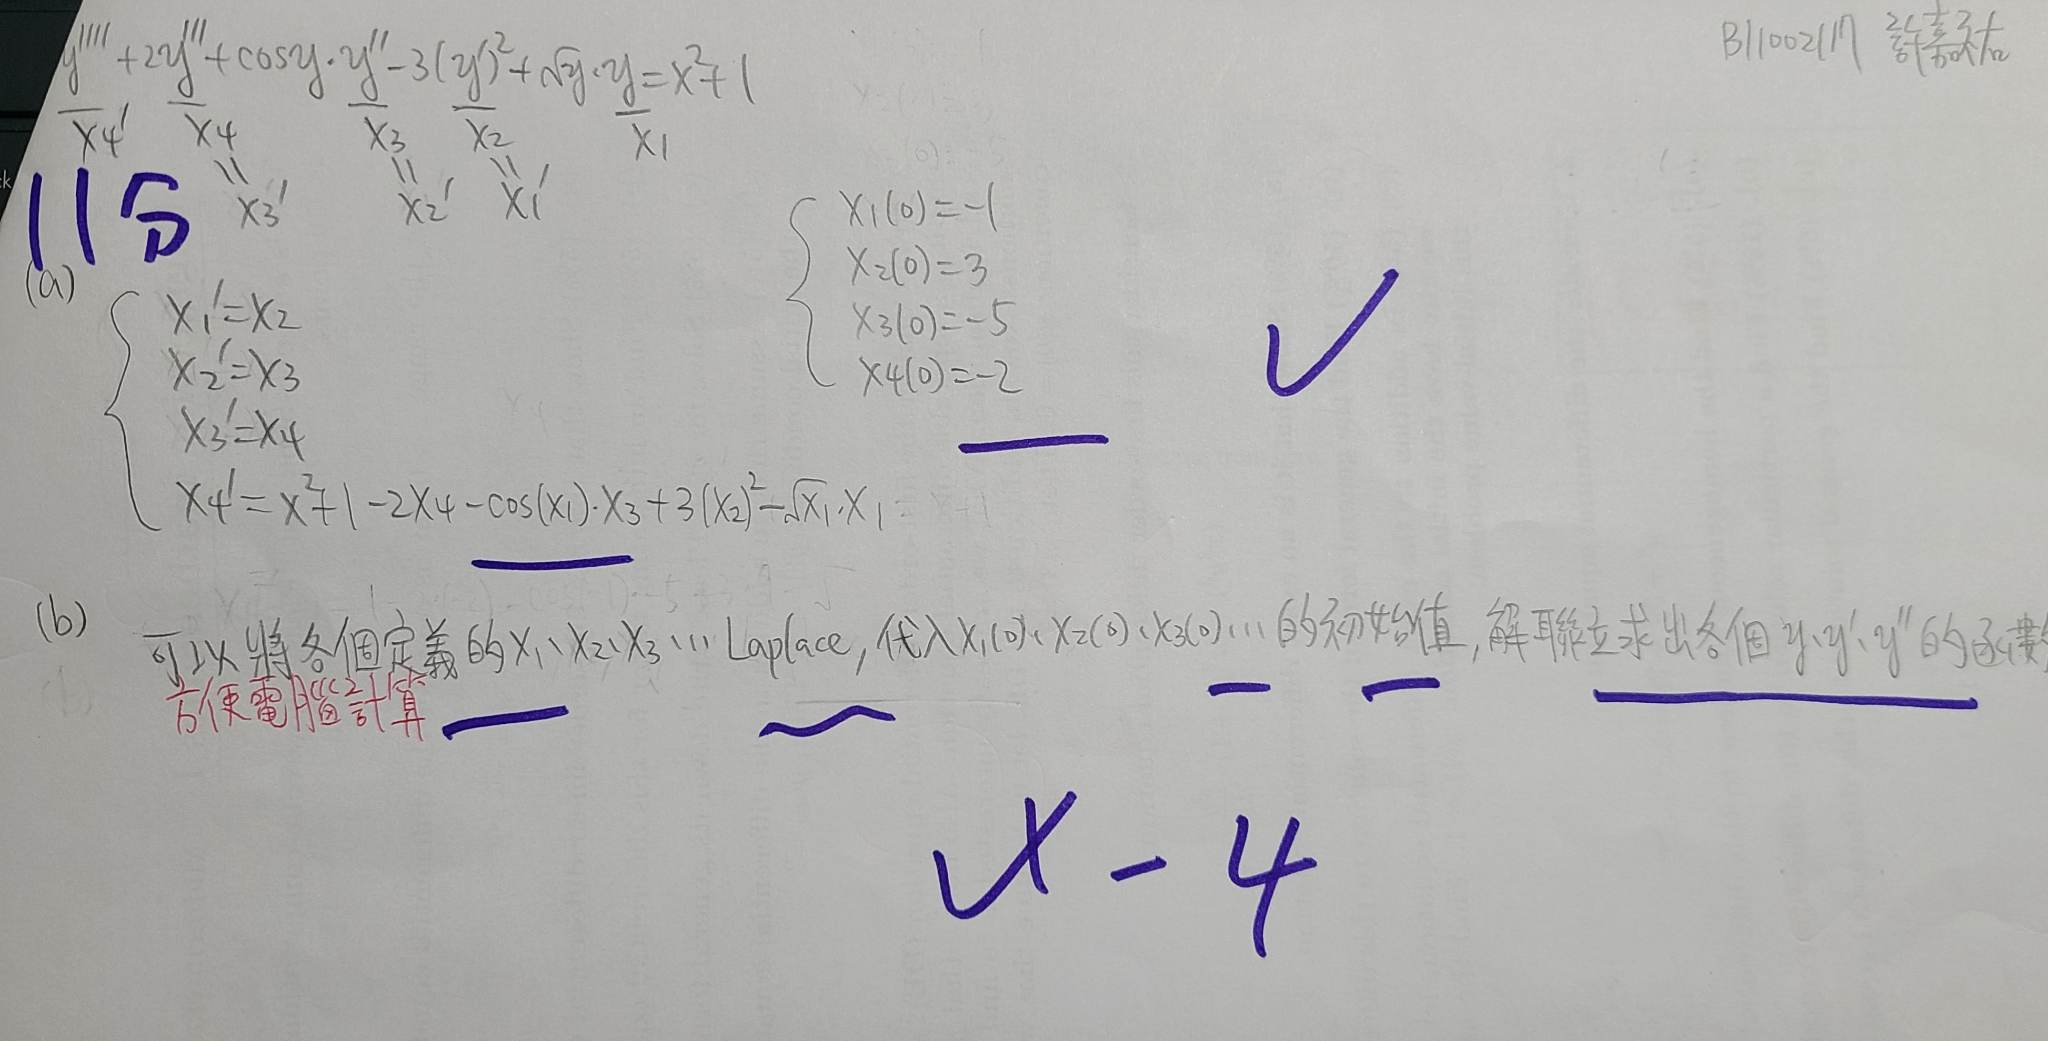 B11002117 許嘉祐
y''''+2y'''+cosy·y''-3(y')²+√y·y=x²+1
x4' x4 x3 x2 x1
= = =
x3' x2' x1'
11分
(a)
x1'=x2
x2'=x3
x3'=x4
x4'=x²+1-2x4-cos(x1)·x3+3(x2)²-√x1·x1
x1(0)=-1
x2(0)=3
x3(0)=-5
x4(0)=-2
(b) 可以將各個定義的x1、x2、x3… Laplace, 代入x1(0)、x2(0)、x3(0)…的初始值,解聯立求出各個y、y'、y''的函數
方便電腦計算
-4